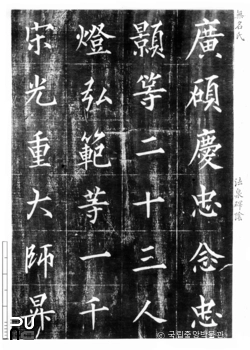 無名氏
廣碩慶忠念忠
顥等二十三人
燈弘範等一千
宋光重大師
法泉碑陰
© 국립중앙박물관